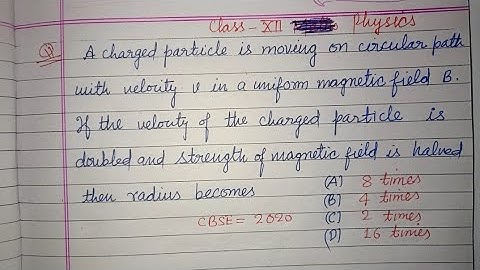 Class - XII Physics
Q A charged particle is moving on circular path
with velocity v in a uniform magnetic field B.
If the velocity of the charged particle is
doubled and strength of magnetic field is halved
then radius becomes (A) 8 times
(B) 4 times
CBSE = 2020 (C) 2 times
(D) 16 times